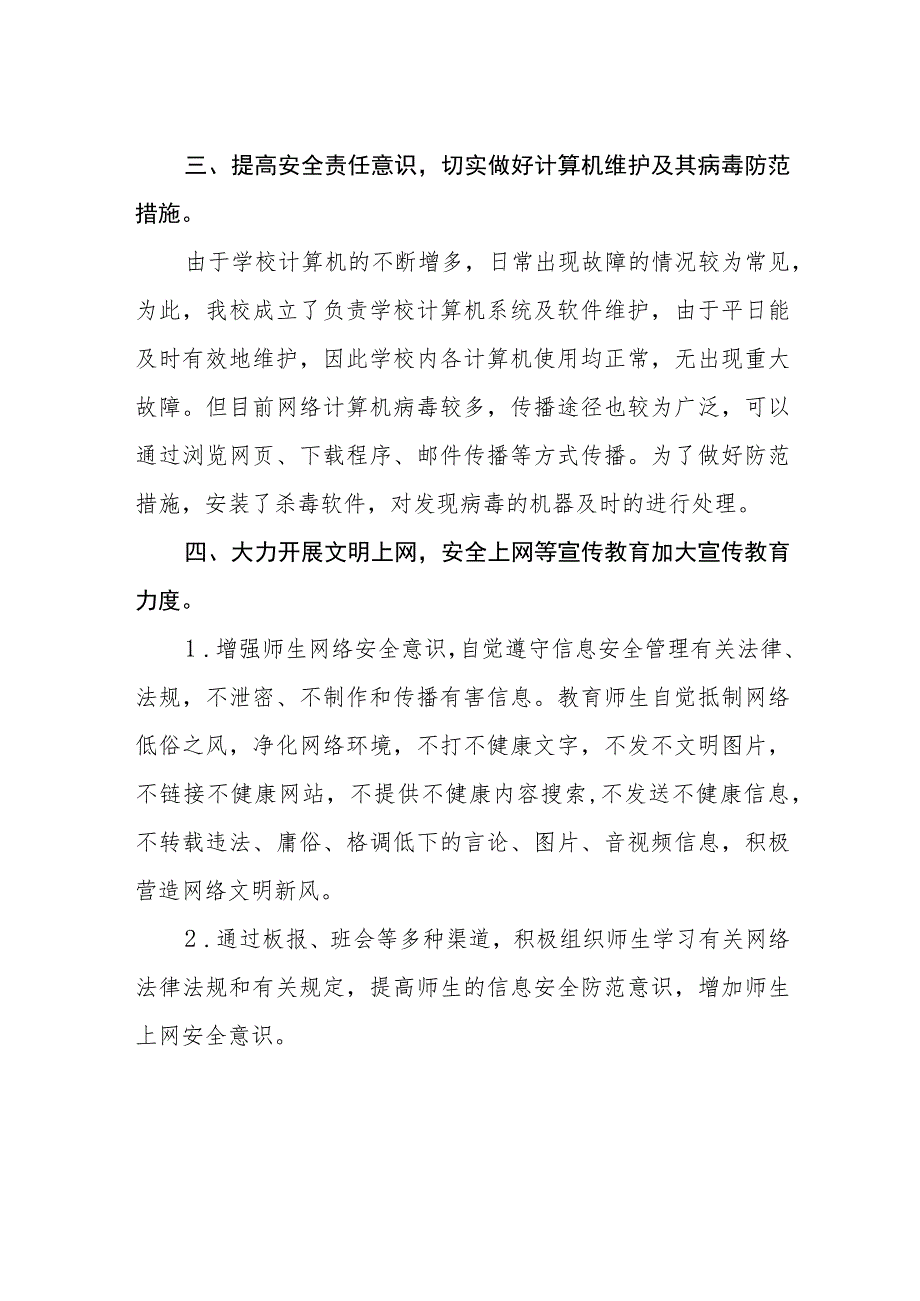 三、提高安全责任意识，切实做好计算机维护及其病毒防范
措施。
由于学校计算机的不断增多，日常出现故障的情况较为常见，
为此，我校成立了负责学校计算机系统及软件维护，由于平日能
及时有效地维护，因此学校内各计算机使用均正常，无出现重大
故障。但目前网络计算机病毒较多，传播途径也较为广泛，可以
通过浏览网页、下载程序、邮件传播等方式传播。为了做好防范
措施，安装了杀毒软件，对发现病毒的机器及时的进行处理。
四、大力开展文明上网，安全上网等宣传教育加大宣传教育
力度。
1.增强师生网络安全意识，自觉遵守信息安全管理有关法律、
法规，不泄密、不制作和传播有害信息。教育师生自觉抵制网络
低俗之风，净化网络环境，不打不健康文字，不发不文明图片，
不链接不健康网站，不提供不健康内容搜索,不发送不健康信息，
不转载违法、庸俗、格调低下的言论、图片、音视频信息，积极
营造网络文明新风。
2.通过板报、班会等多种渠道，积极组织师生学习有关网络
法律法规和有关规定，提高师生的信息安全防范意识，增加师生
上网安全意识。